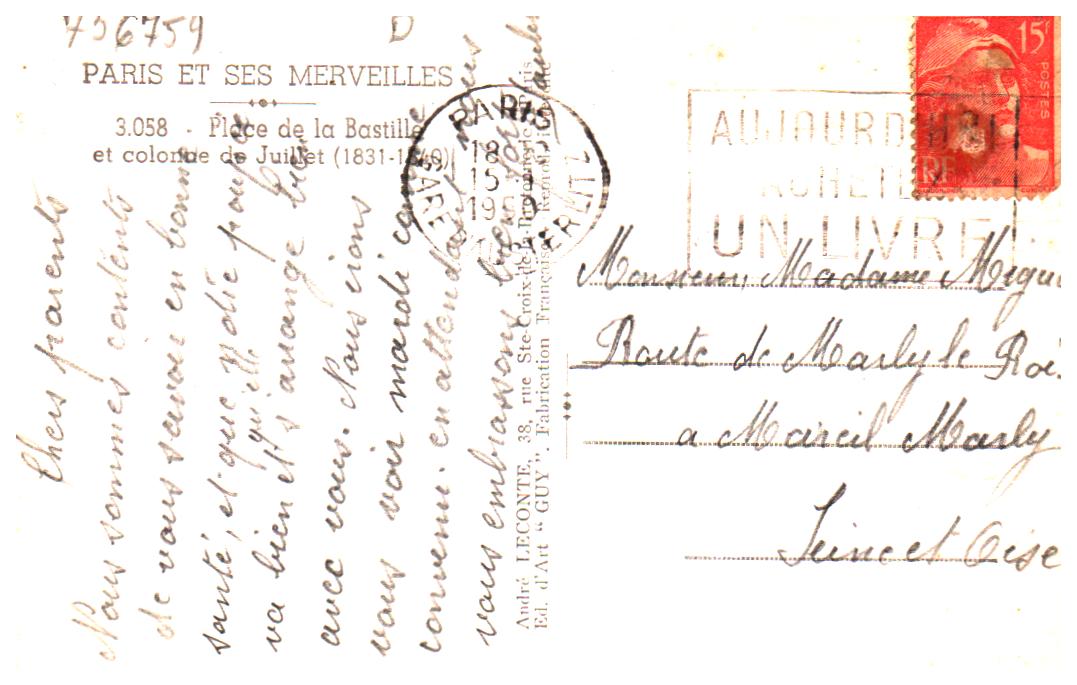 736759
D
PARIS ET SES MERVEILLES
3.058 - Place de la Bastille
et colonne de Juillet (1831-1840)
Chers parents
Nous sommes contents
de vous savoir en bonne
santé, et que
va bien et s'arrange bien
avec vous. Nous irons
vous voir mardi comme
convenu en attendant nous
vous embrassons bien fort
André LECONTE, 38, rue Ste-Croix-de-la-Bretonnerie, Paris
Ed. d'Art "GUY". Fabrication Française.
PARIS
GARE
18
15
19
AUJOURD'HUI
ACHETEZ
UN LIVRE
15F
POSTES
RF
Monsieur, Madame
Route de Marly le Roi.
a Mareil Marly
Seine et Oise